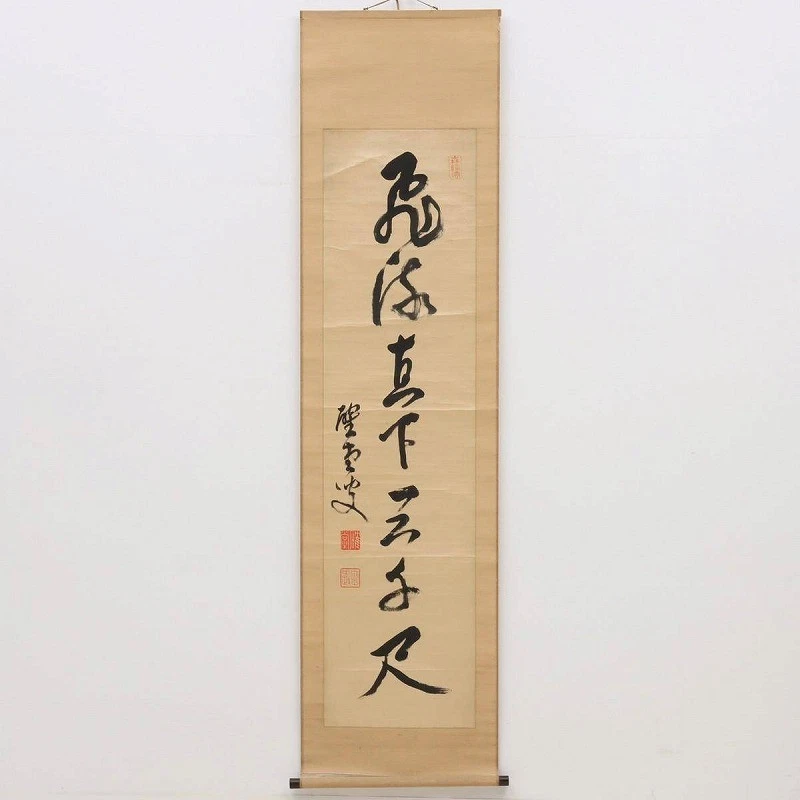 飛流直下三千尺
聖堂叟